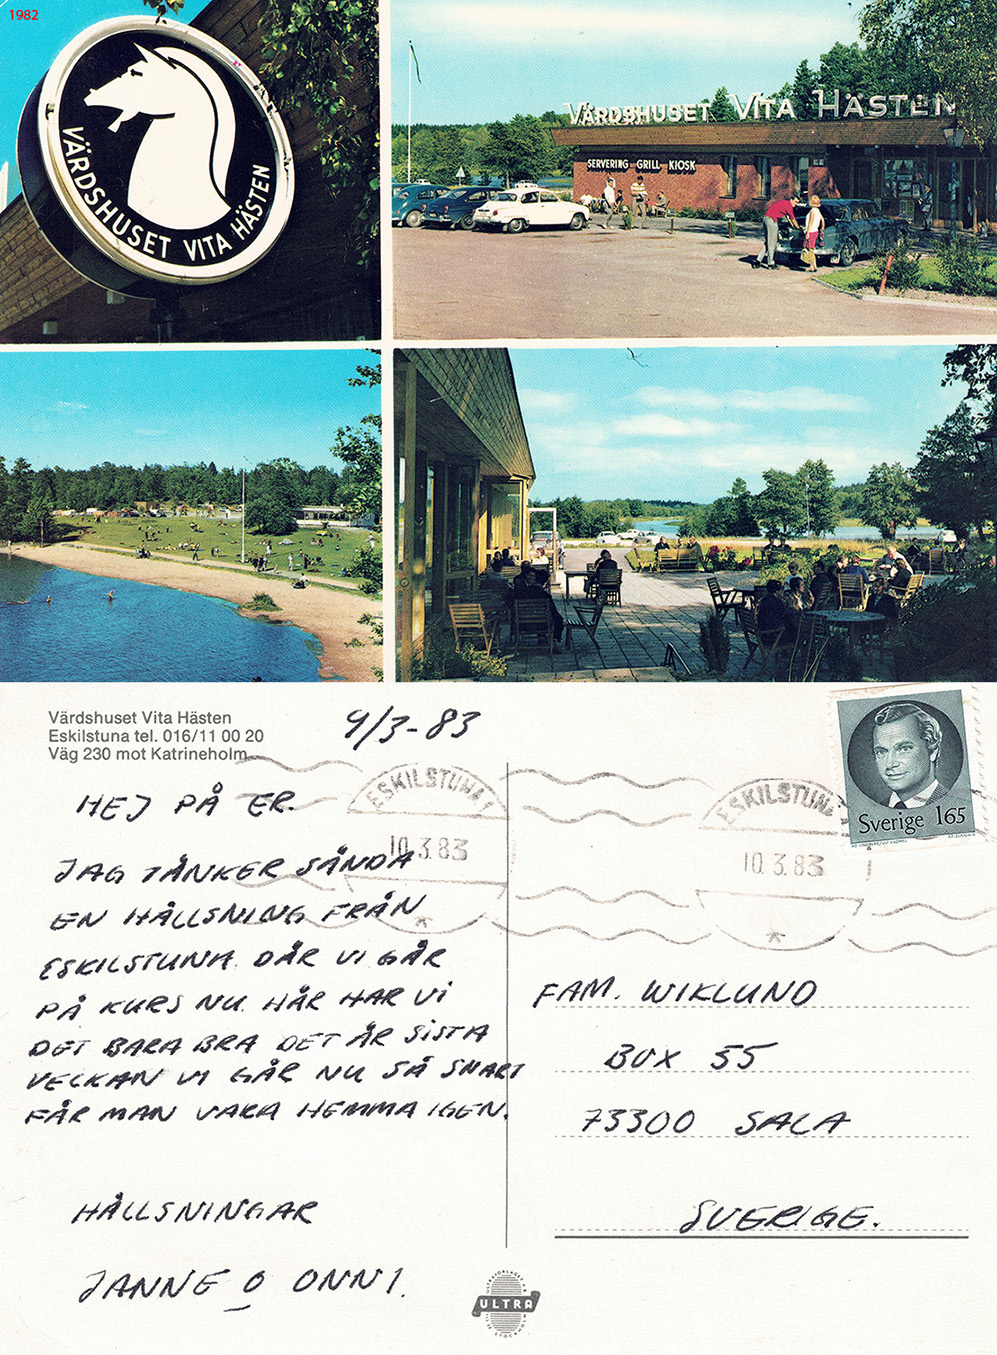 1982
VÄRDSHUSET VITA HÄSTEN
VÄRDSHUSET VITA HÄSTEN
SERVERING GRILL KIOSK
Värdshuset Vita Hästen
Eskilstuna tel. 016/11 00 20
Väg 230 mot Katrineholm
9/3-83
ESKILSTUNA 1
10.3.83
ESKILSTUNA
10.3.83
Sverige 165
HEJ PÅ ER.
JAG TÄNKER SÄNDA
EN HÄLLSNING FRÅN
ESKILSTUNA DÄR VI GÅR
PÅ KURS NU HÄR HAR VI
DET BARA BRA DET ÄR SISTA
VECKAN VI GÅR NU SÅ SNART
FÅR MAN VARA HEMMA IGEN.
HÄLLSNINGAR
JANNE O ONNI.
FAM. WIKLUND
BOX 55
73300 SALA
SVERIGE.
ULTRA